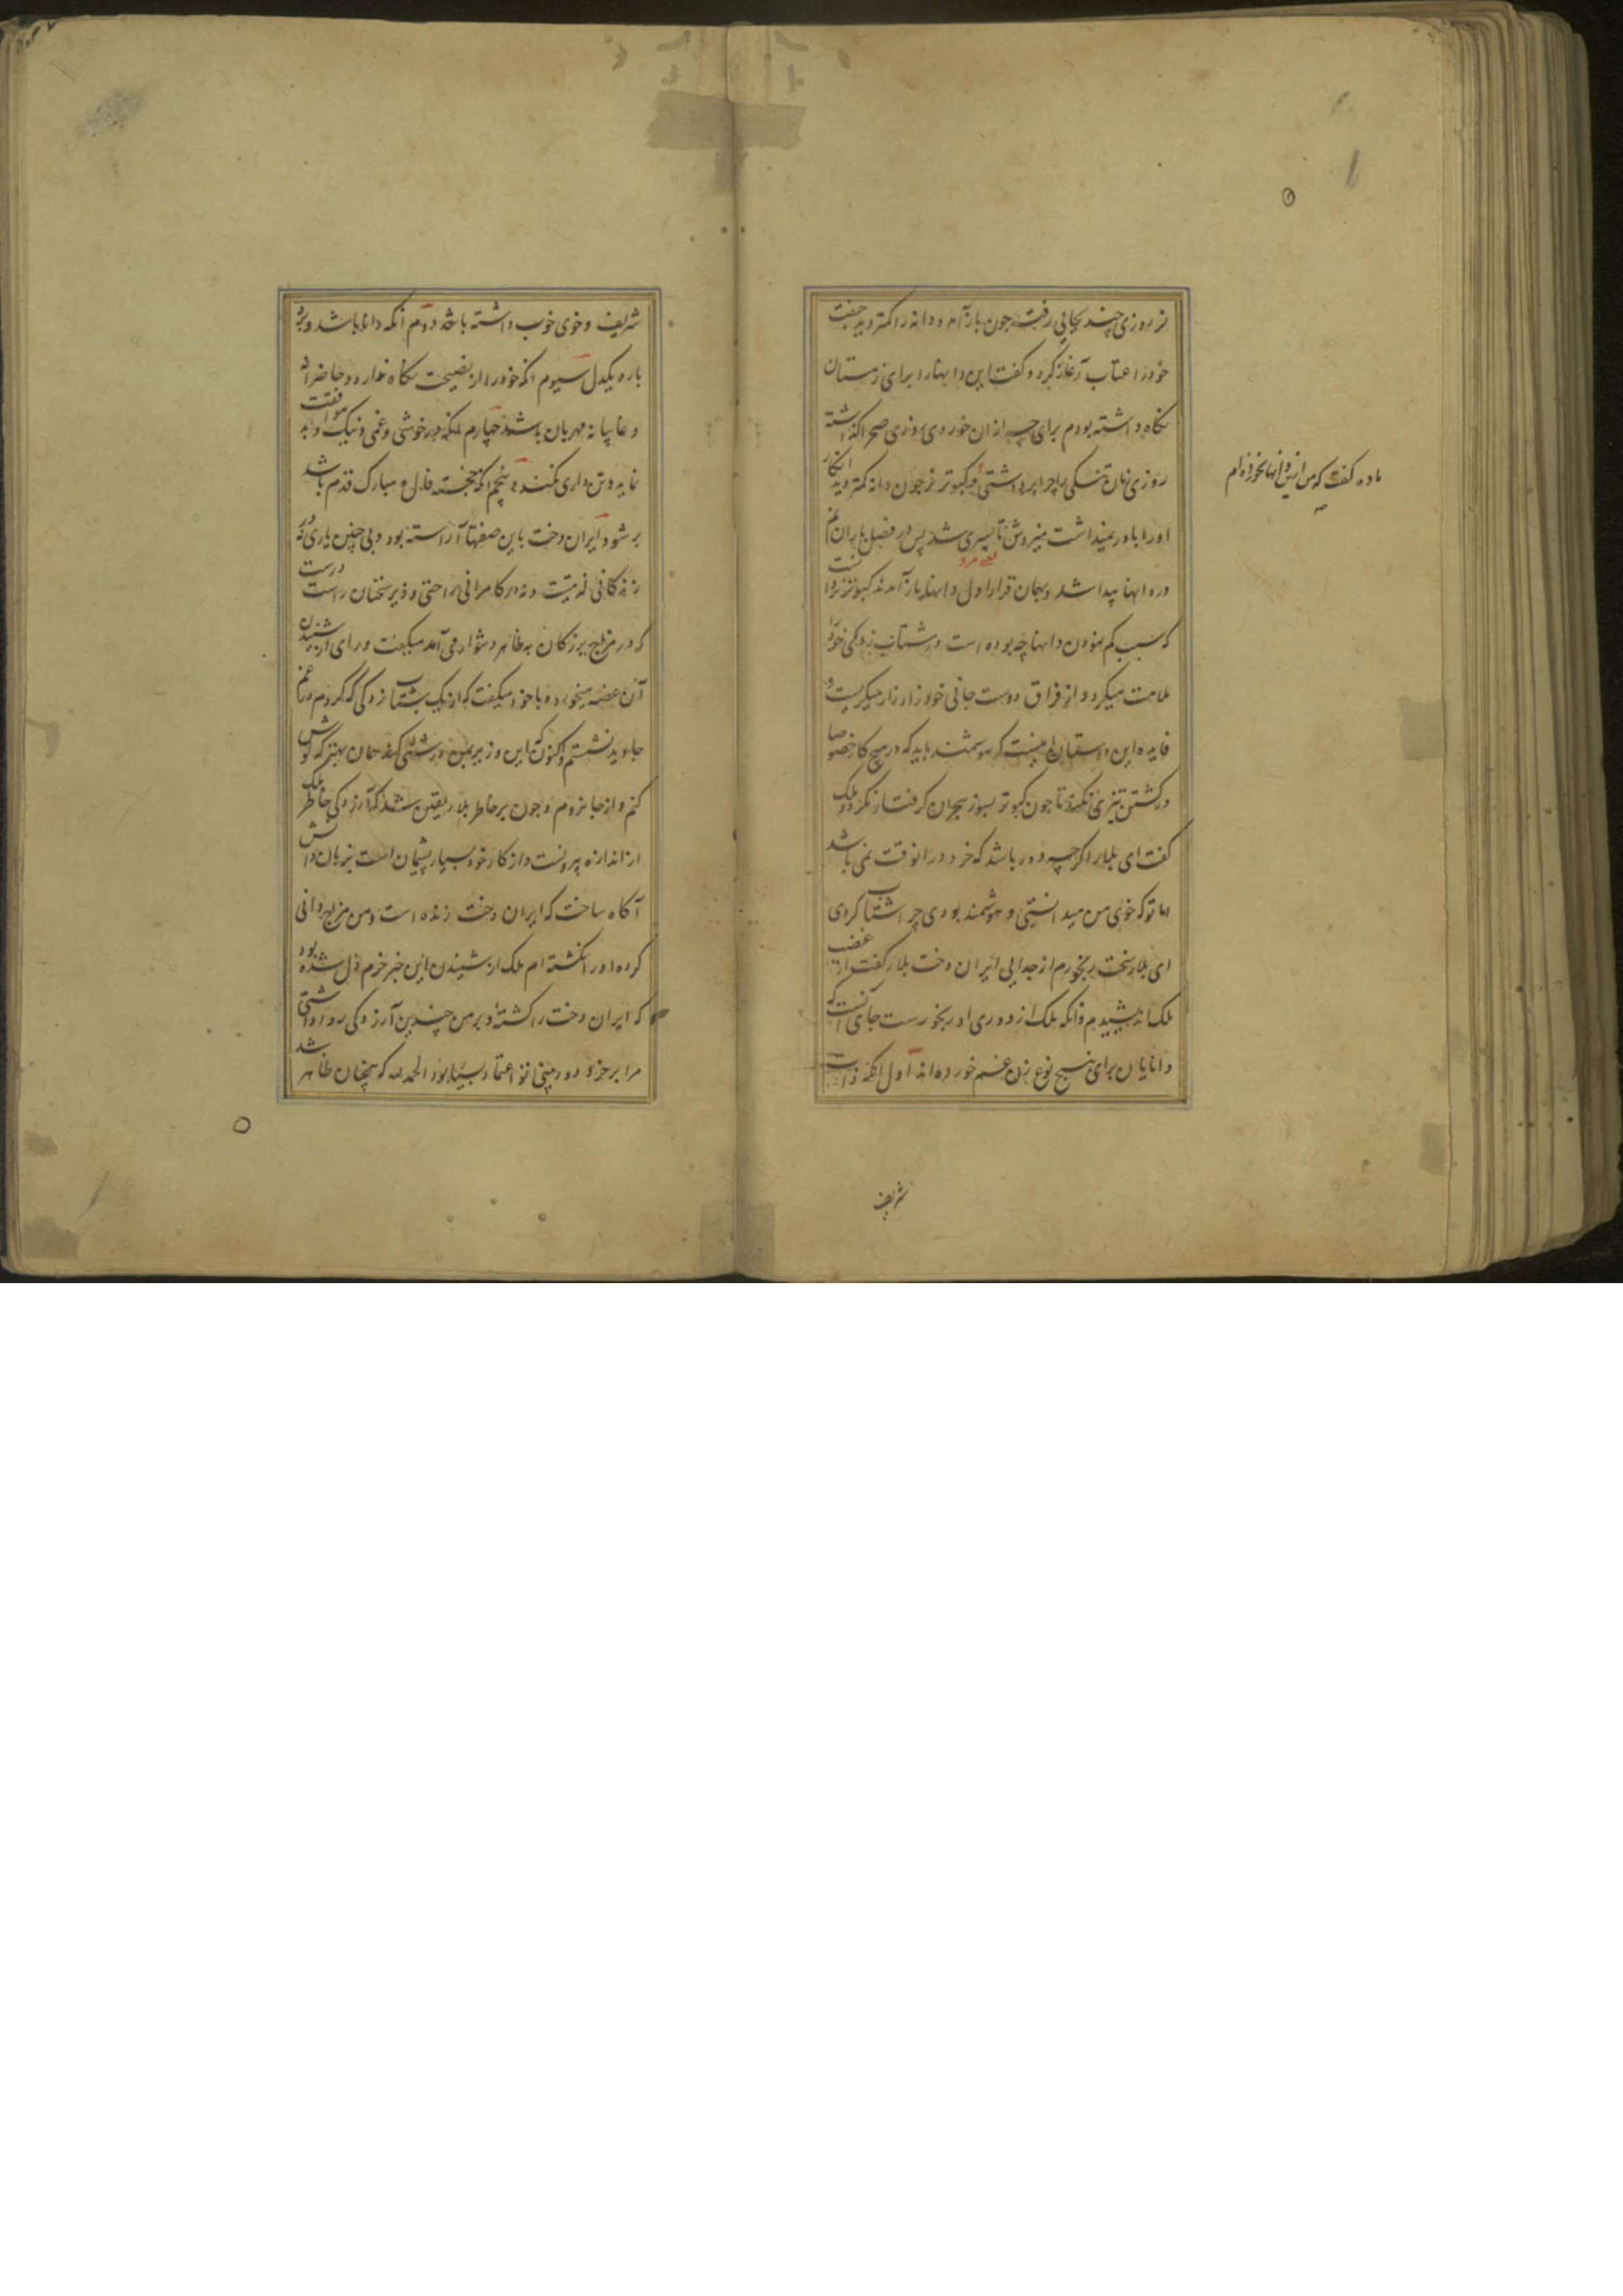 نر روزی چند بجایی رفت چون باز آمد و دانه را کمتر دید جفت
خود را عتاب آغاز کرد و گفت این دانها را برای زمستان
نگاه داشته بودم برای چه ازان خوردی روزی صحرا گذاشته
روزی نان خشکی را چرا برداشتی کبوتر نر چون دانه کمتر دید انکار
او را باور نمیداشت میزدش تا سپری شد پس در فصل باران نم
در دانها پیدا شد و بهمان قرار اول دانها باز آمدند کبوتر نر دانست
که سبب کم نمودن دانها چه بوده است در شتاب زدگی خود را
ملامت میکرد و از فراق دوست جانی خود زار زار میگریست و
فایده این داستان اینست که هوشمند باید که در هیچ کار خصوصا
در کشتن تیزی نکند تا چون کبوتر بسوز هجران گرفتار نگردد ملک
گفت ای بلار اگرچه دور باشد که خرد در انوقت نمی باشد
اما تو که خوی من میدانستی و هوشمند بودی چرا شتاب کردی
ای بلار سخت رنجورم از جدایی ایران دخت بلار گفت از غضب
ملک اندیشیدم و انکه ملک از دوری او رنجورست جای آنست که
دانایان برای پنج نوع زن غم خورده اند اول انکه ذات
ماده گفت که من ازین دانها نخورده ام
شریف
شریف و خوی خوب داشته باشد دوم انکه دانا باشد و بر
بار و یکدل سیوم انکه خود را از نصیحت نگاه ندارد و حاضرانه
و غایبانه مهربان باشد چهارم انکه در خوشی و غمی و نیک و بد موافقت
نماید و تن داری نکند پنجم انکه خجسته فال و مبارک قدم باشد
بر شود ایران دخت باین صفتها آراسته بود و بی چنین یاری نه در
زندگانی لذتیست و نه در کامرانی راحتی وزیر سخنان راست درست
که در مزاج بزرگان بظاهر دشوار می آمد میگفت و رای از شنیدن
آن غصه میخورد و با خود میگفت که از یک شتاب زدگی که کردم در غم
جاوید نشستم و اکنون که این وزیر بمن درشتی کند همان بهتر که گوش
کنم و از جا نروم و چون بر خاطر بلار یقین شد که آزردگی خاطر ملک
از اندازه بیرونست و از کار خود بسیار پشیمان است بزبان دانش
آگاه ساخت که ایران دخت زنده است و من مزاج دانی
کرده او را نکشته ام ملک از شنیدن این خبر خرم دل شده بود
که ایران دخت را کشته و بر من چندین آزردگی روا داشتی
مرا بر خرد و دوربینی تو اعتماد بسیار بود الحمد لله که همچنان ظاهر شد